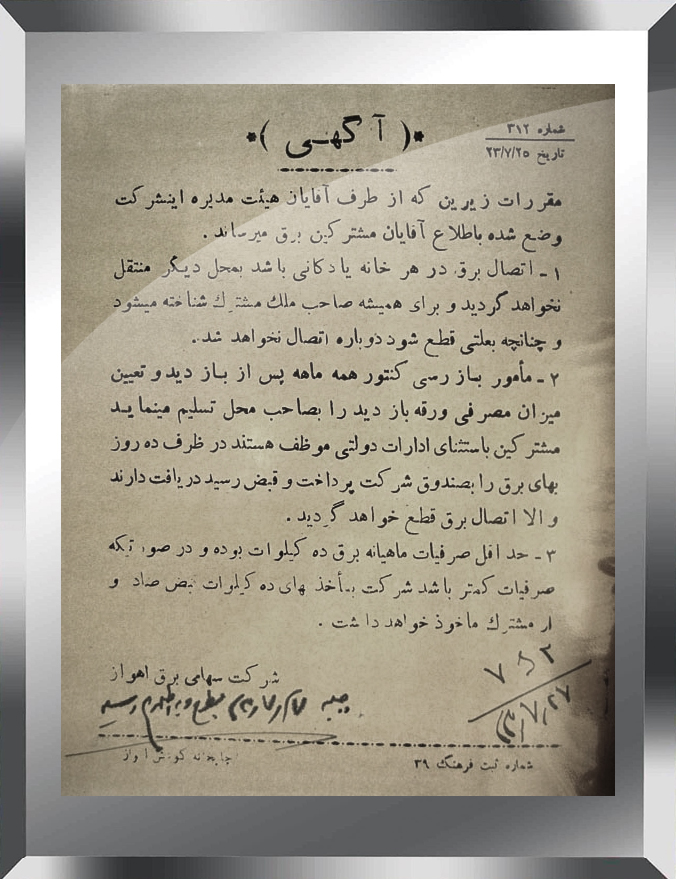 شماره ۳۱۲
تاریخ ۲۳/۷/۲۵
*( آگهی )*
مقررات زیرین که از طرف آقایان هیئت مدیره اینشرکت
وضع شده باطلاع آقایان مشترکین برق میرساند .
۱ ـ اتصال برق در هر خانه یا دکانی باشد بمحل دیگر منتقل
نخواهد گردید و برای همیشه صاحب ملك مشترك شناخته میشود
و چنانچه بعلتی قطع شود دوباره اتصال نخواهد شد.
۲ ـ مأمور بازرسی کنتور همه ماهه پس از بازدید و تعیین
میزان مصرفی ورقه بازدید را بصاحب محل تسلیم مینماید
مشترکین باستثنای ادارات دولتی موظف هستند در ظرف ده روز
بهای برق را بصندوق شرکت پرداخت و قبض رسید دریافت دارند
و الا اتصال برق قطع خواهد گردید .
۳ ـ حداقل صرفیات ماهیانه برق ده کیلوات بوده و در صورتیکه
صرفیات کمتر باشد شرکت بمأخذ بهای ده کیلوات قبض صادر و
از مشترك ماخوذ خواهد داشت .
شرکت سهامی برق اهواز
۲۷/۷/۲۳
شماره ثبت فرهنگ ۳۹
چاپخانه